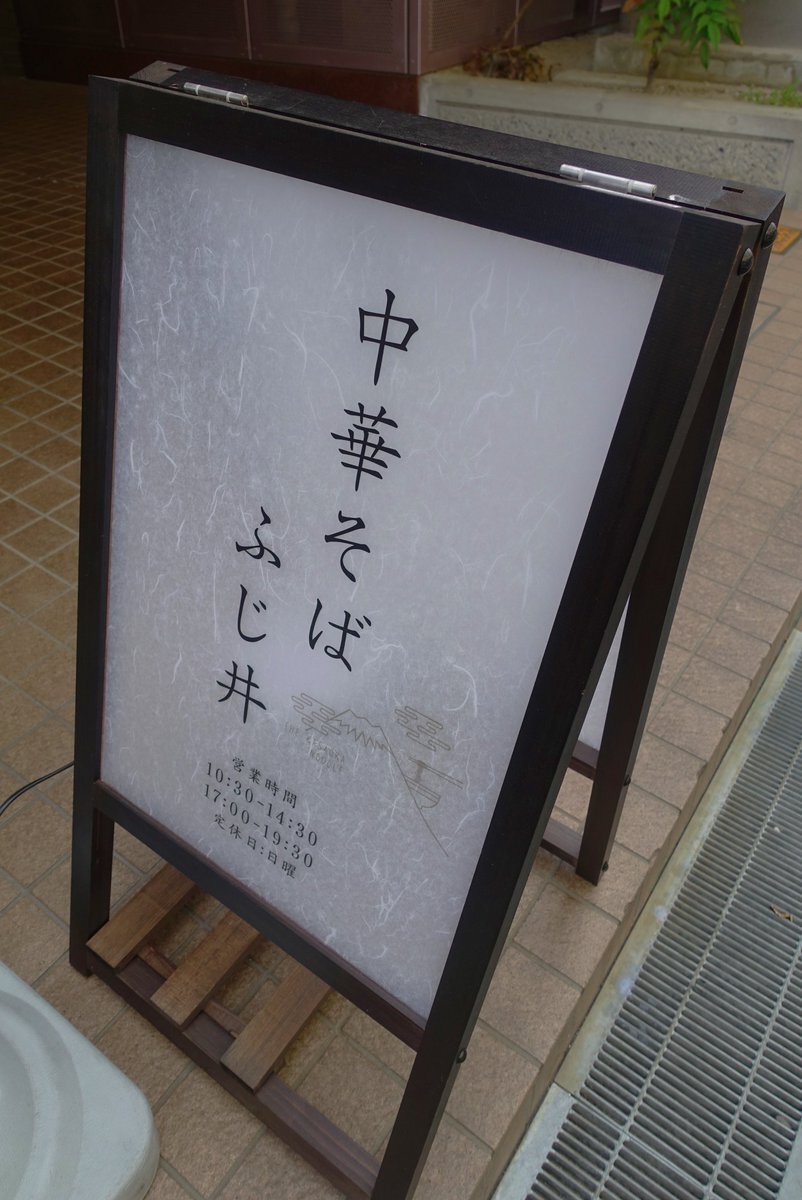 中華そば
ふじ井
営業時間
10:30-14:30
17:00-19:30
定休日:日曜